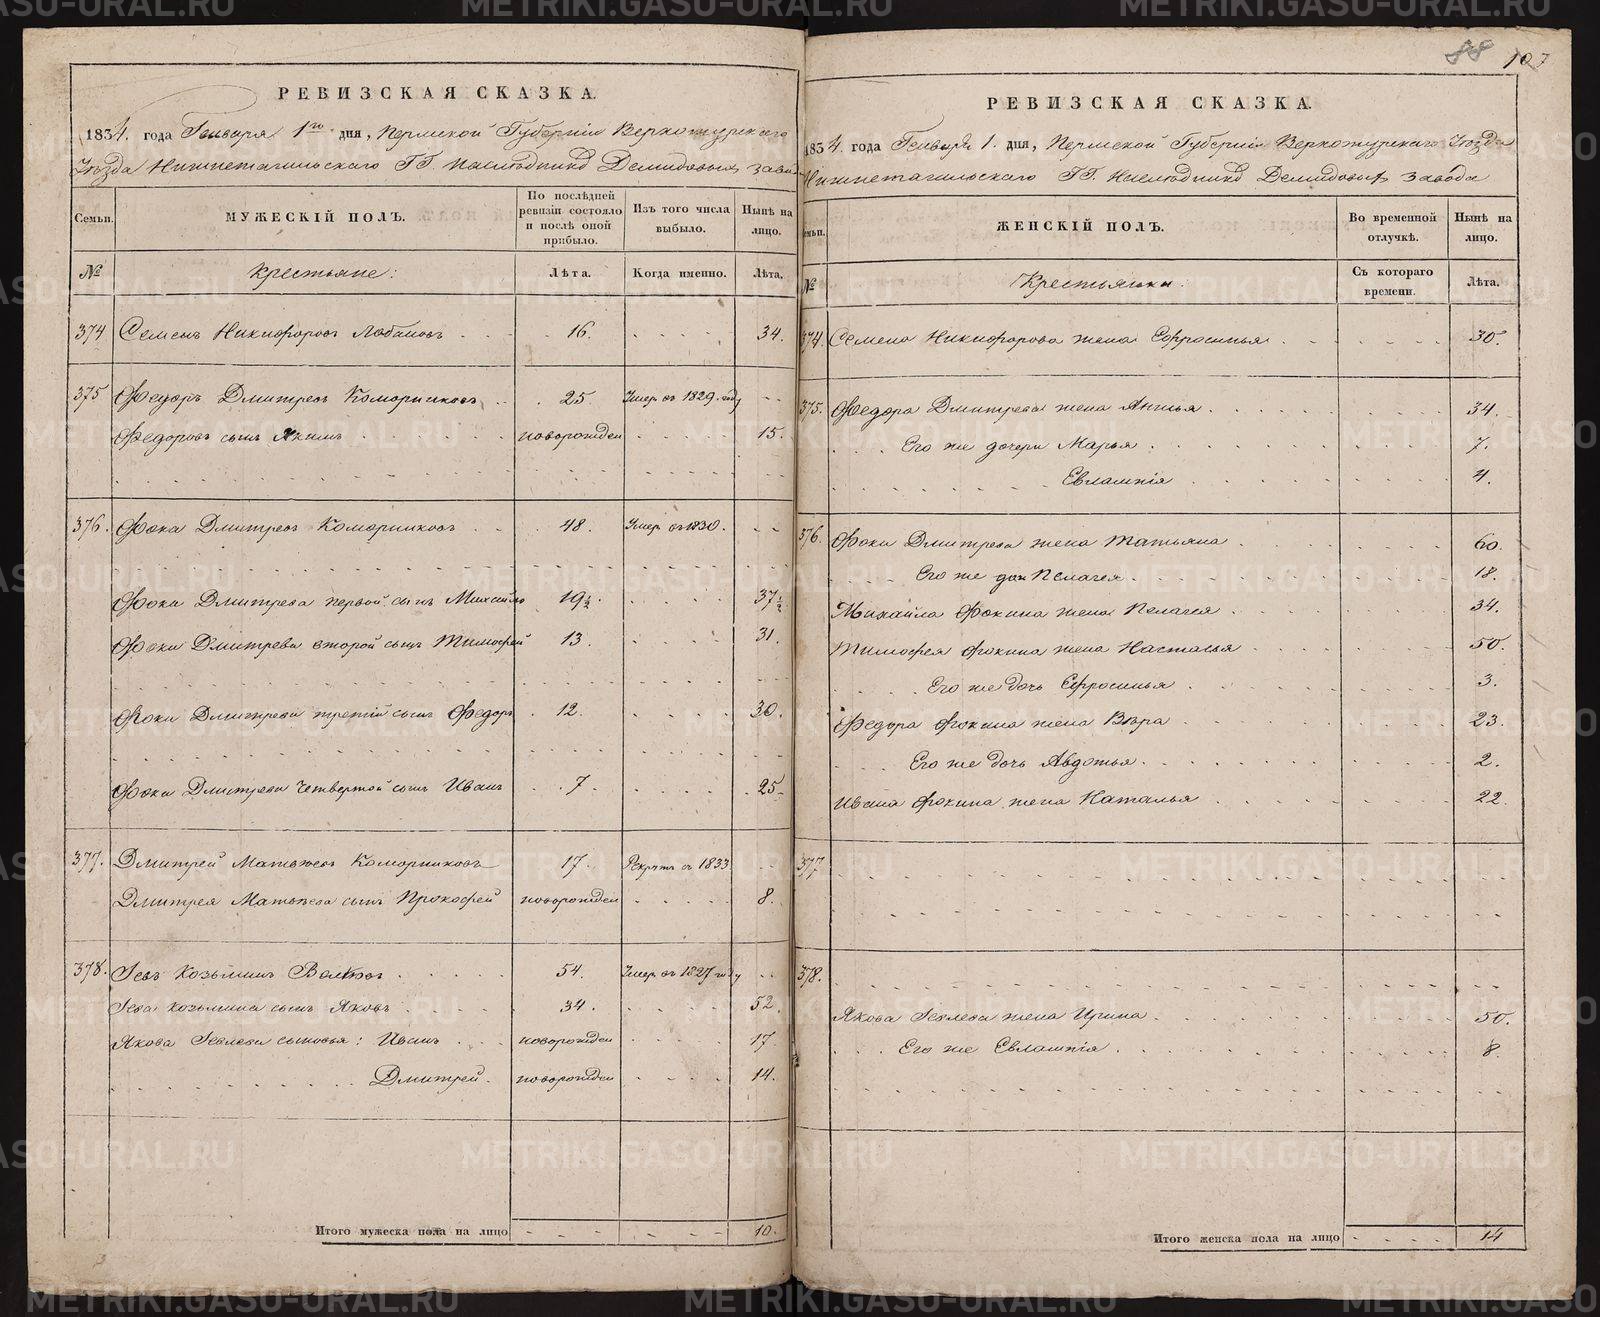 88 107
РЕВИЗСКАЯ СКАЗКА.
1834. года Генваря 1го дня, Пермской Губерніи Верхотурскаго
Уѣзда Нижнетагильскаго ГГ. Наслѣдниковъ Демидовыхъ заво
Семьи. МУЖЕСКІЙ ПОЛЪ. По последней ревизіи состояло и послѣ оной прибыло. Изъ того числа выбыло. Нынѣ на лицо.
№ Крестьяне: Лѣта. Когда именно. Лѣта.
374 Семенъ Никифоровъ Лобановъ 16. 34.
375 Федоръ Дмитревъ Коморниковъ 25 Умер. въ 1829. году
Федоровъ сынъ Якимъ новорожден 15.
376. Фока Дмитревъ Коморниковъ 48. Умер. въ 1830.
Фоки Дмитрева первой сынъ Михайло 19½. 37½
Фоки Дмитрева второй сынъ Тимофей 13. 31.
Фоки Дмитрева третій сынъ Федоръ 12. 30.
Фоки Дмитрева четвертой сынъ Иванъ 7. 25.
377. Дмитрей Матвѣевъ Коморниковъ 17. Рекрутъ съ 1833
Дмитрея Матвѣева сынъ Прокофей новорожден 8.
378. Іевъ Козьминъ Волковъ 54. Умер. въ 1827 году
Іева Козьмина сынъ Яковъ 34. 52.
Якова Іевлева сыновья: Иванъ новорожден 17
Дмитрей. новорожден 14.
Итого мужеска пола на лицо 10.
РЕВИЗСКАЯ СКАЗКА.
1834. года Генваря 1. дня, Пермской Губерніи Верхотурскаго Уѣзда
Нижнетагильскаго ГГ. Наслѣдниковъ Демидовыхъ завода
Семьи. ЖЕНСКІЙ ПОЛЪ. Во временной отлучкѣ. Нынѣ на лицо.
№ Крестьянки: Съ котораго времени. Лѣта.
374. Семена Никифорова жена Ефросинья 30.
375. Федора Дмитрева жена Анисья 34.
Его же дочери Марья 7.
Евлампія 4.
376. Фоки Дмитрева жена Татьяна 60.
Его же доч Пелагея 18.
Михайла Фокина жена Пелагея 34.
Тимофея Фокина жена Настасья 50.
Его же дочь Ефросинья 3.
Федора Фокина жена Вѣра 23.
Его же дочь Авдотья 2.
Ивана Фокина жена Наталья 22.
377
378.
Якова Іевлева жена Ирина 50.
Его же Евлампія 8.
Итого женска пола на лицо 14
METRIKI.GASO-URAL.RU